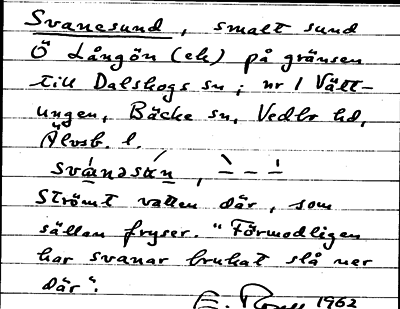 Svanesund, smalt sund
Ö Långön (ek) på gränsen
till Dalskogs sn; nr 1 Vätt-
ungen, Bäcke sn, Vedbo hd,
Älvsb. l.
svánəsún,
Strömt vatten där, som
sällan fryser. "Förmodligen
har svanar brukat slå ner
där".
E. 1962